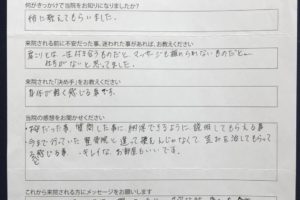 何がきっかけで当院をお知りになりましたか?
に教えてもらいました。
来院される前に不安だった事、迷われた事があれば、お教えください
肩こりとは一生付き合うものだと マッサージも揉みられないものだと
仕方がないと思ってました。
来院された「決め手」をお教えください
身体が軽く感じる事から。
当院の感想をお聞かせください
だった事、質問した事に納得できるように説明してもらえる事
今まで行っていた整骨院と違って揉むんじゃなくて 歪みを治してもらって
る感じる事。キレイなお部屋もいいです。
これから来院される方にメッセージをお願いします